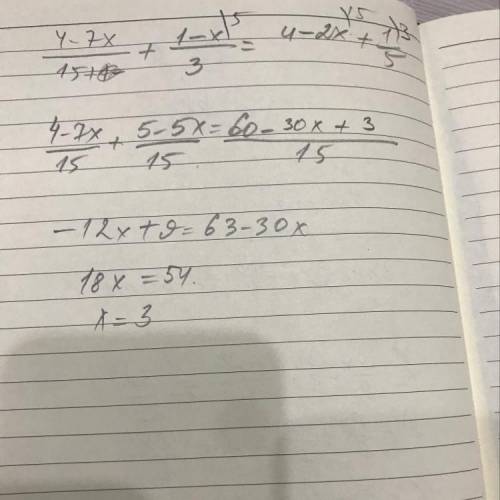 (4-7x)/15 + (1-x)/3 \5 = 4-2x \15 + 1/5 \3
(4-7x)/15 + (5-5x)/15 = (60-30x+3)/15
-12x+9=63-30x
18x=54.
x=3